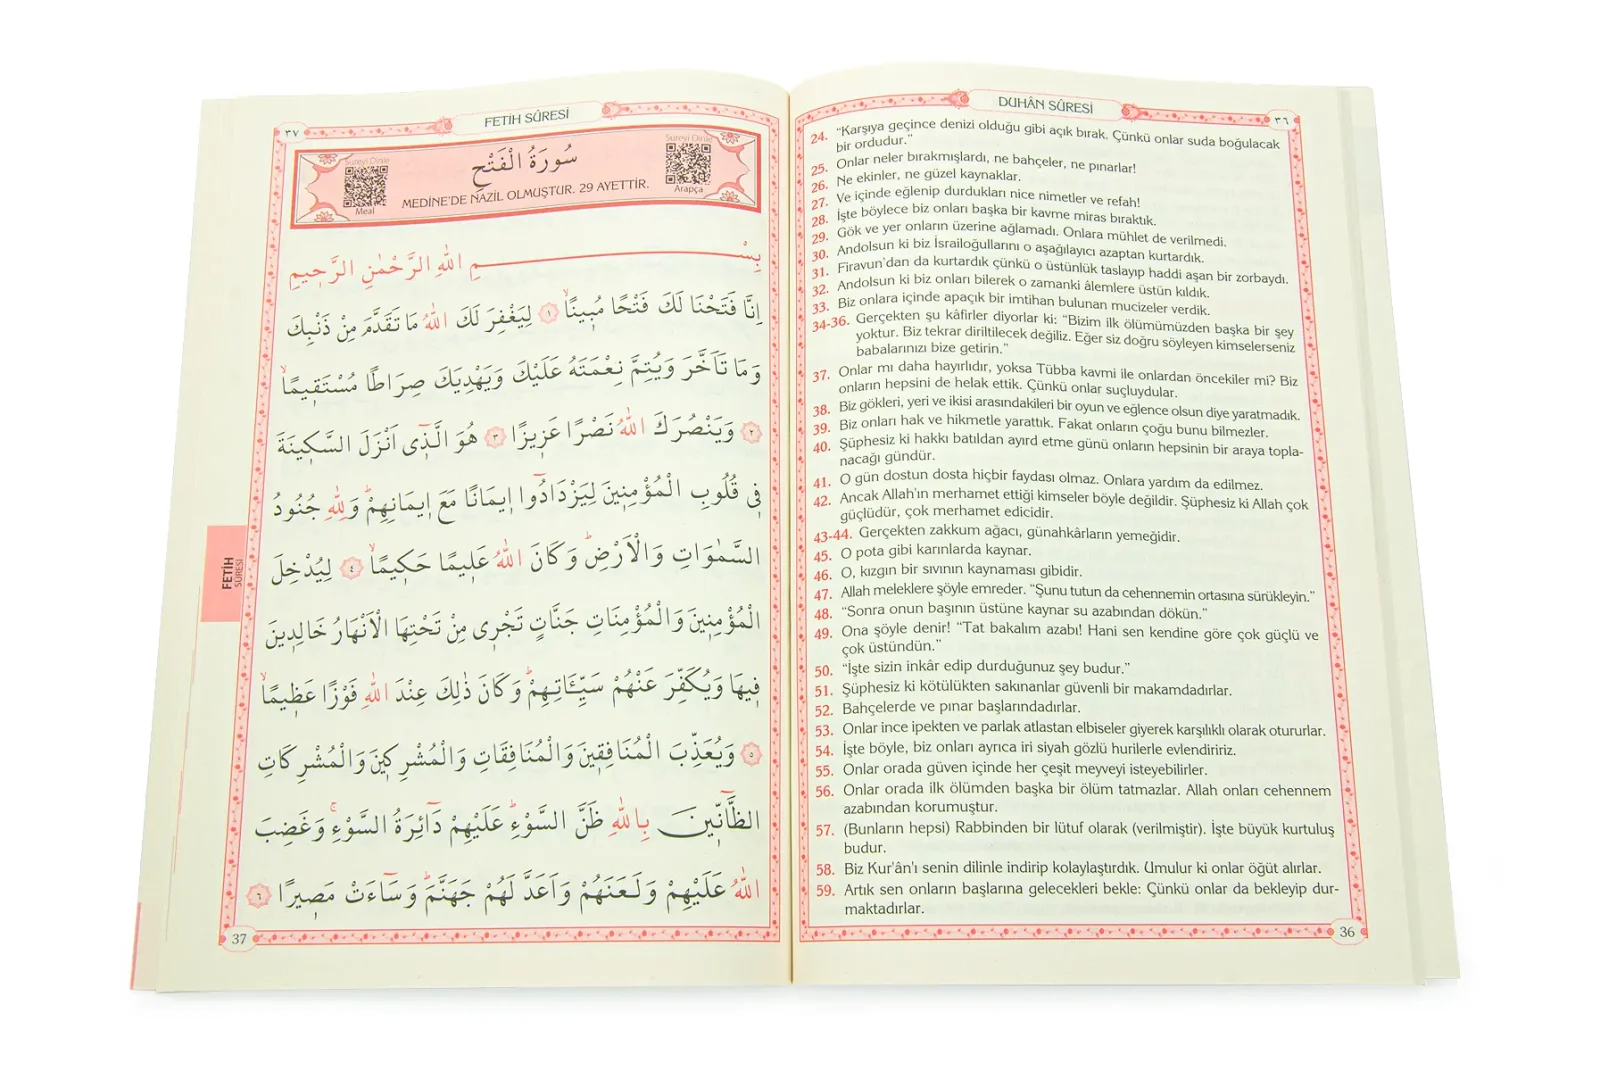 DUHÂN SÛRESİ
٣٦
24. “Karşıya geçince denizi olduğu gibi açık bırak. Çünkü onlar suda boğulacak
bir ordudur.”
25. Onlar neler bırakmışlardı, ne bahçeler, ne pınarlar!
26. Ne ekinler, ne güzel kaynaklar.
27. Ve içinde eğlenip durdukları nice nimetler ve refah!
28. İşte böylece biz onları başka bir kavme miras bıraktık.
29. Gök ve yer onların üzerine ağlamadı. Onlara mühlet de verilmedi.
30. Andolsun ki biz İsrailoğullarını o aşağılayıcı azaptan kurtardık.
31. Firavun’dan da kurtardık çünkü o üstünlük taslayıp haddi aşan bir zorbaydı.
32. Andolsun ki biz onları bilerek o zamanki âlemlere üstün kıldık.
33. Biz onlara içinde apaçık bir imtihan bulunan mucizeler verdik.
34-36. Gerçekten şu kâfirler diyorlar ki: “Bizim ilk ölümümüzden başka bir şey
yoktur. Biz tekrar diriltilecek değiliz. Eğer siz doğru söyleyen kimselerseniz
babalarınızı bize getirin.”
37. Onlar mı daha hayırlıdır, yoksa Tübba kavmi ile onlardan öncekiler mi? Biz
onların hepsini de helak ettik. Çünkü onlar suçluydular.
38. Biz gökleri, yeri ve ikisi arasındakileri bir oyun ve eğlence olsun diye yaratmadık.
39. Biz onları hak ve hikmetle yarattık. Fakat onların çoğu bunu bilmezler.
40. Şüphesiz ki hakkı batıldan ayırd etme günü onların hepsinin bir araya topla-
nacağı gündür.
41. O gün dostun dosta hiçbir faydası olmaz. Onlara yardım da edilmez.
42. Ancak Allah’ın merhamet ettiği kimseler böyle değildir. Şüphesiz ki Allah çok
güçlüdür, çok merhamet edicidir.
43-44. Gerçekten zakkum ağacı, günahkârların yemeğidir.
45. O pota gibi karınlarda kaynar.
46. O, kızgın bir sıvının kaynaması gibidir.
47. Allah meleklere şöyle emreder. “Şunu tutun da cehennemin ortasına sürükleyin.”
48. “Sonra onun başının üstüne kaynar su azabından dökün.”
49. Ona şöyle denir! “Tat bakalım azabı! Hani sen kendine göre çok güçlü ve
çok üstündün.”
50. “İşte sizin inkâr edip durduğunuz şey budur.”
51. Şüphesiz ki kötülükten sakınanlar güvenli bir makamdadırlar.
52. Bahçelerde ve pınar başlarındadırlar.
53. Onlar ince ipekten ve parlak atlastan elbiseler giyerek karşılıklı olarak otururlar.
54. İşte böyle, biz onları ayrıca iri siyah gözlü hurilerle evlendiririz.
55. Onlar orada güven içinde her çeşit meyveyi isteyebilirler.
56. Onlar orada ilk ölümden başka bir ölüm tatmazlar. Allah onları cehennem
azabından korumuştur.
57. (Bunların hepsi) Rabbinden bir lütuf olarak (verilmiştir). İşte büyük kurtuluş
budur.
58. Biz Kur’ân’ı senin dilinle indirip kolaylaştırdık. Umulur ki onlar öğüt alırlar.
59. Artık sen onların başlarına gelecekleri bekle: Çünkü onlar da bekleyip dur-
maktadırlar.
36
٣٧
FETİH SÛRESİ
Sureyi Dinle
Sureyi Dinle
سُورَةُ الْفَتْحِ
MEDİNE’DE NAZİL OLMUŞTUR. 29 AYETTİR.
Meal
Arapça
بِسْمِ اللهِ الرَّحْمٰنِ الرَّحٖيمِ
اِنَّا فَتَحْنَا لَكَ فَتْحًا مُبٖينًاۙ ١ لِيَغْفِرَ لَكَ اللهُ مَا تَقَدَّمَ مِنْ ذَنْبِكَ
وَمَا تَاَخَّرَ وَيُتِمَّ نِعْمَتَهُ عَلَيْكَ وَيَهْدِيَكَ صِرَاطًا مُسْتَقٖيمًاۙ
٢ وَيَنْصُرَكَ اللهُ نَصْرًا عَزٖيزًا ٣ هُوَ الَّذٖٓى اَنْزَلَ السَّكٖينَةَ
فٖى قُلُوبِ الْمُؤْمِنٖينَ لِيَزْدَادُٓوا اٖيمَانًا مَعَ اٖيمَانِهِمْؕ وَلِلهِ جُنُودُ
السَّمٰوَاتِ وَالْاَرْضِؕ وَكَانَ اللهُ عَلٖيمًا حَكٖيمًاۙ ٤ لِيُدْخِلَ
الْمُؤْمِنٖينَ وَالْمُؤْمِنَاتِ جَنَّاتٍ تَجْرٖى مِنْ تَحْتِهَا الْاَنْهَارُ خَالِدٖينَ
فٖيهَا وَيُكَفِّرَ عَنْهُمْ سَيِّـَٔاتِهِمْؕ وَكَانَ ذٰلِكَ عِنْدَ اللهِ فَوْزًا عَظٖيمًاۙ
٥ وَيُعَذِّبَ الْمُنَافِقٖينَ وَالْمُنَافِقَاتِ وَالْمُشْرِكٖينَ وَالْمُشْرِكَاتِ
الظَّٓانّٖينَ بِاللهِ ظَنَّ السَّوْءِؕ عَلَيْهِمْ دَٓائِرَةُ السَّوْءِۚ وَغَضِبَ
اللهُ عَلَيْهِمْ وَلَعَنَهُمْ وَاَعَدَّ لَهُمْ جَهَنَّمَؕ وَسَٓاءَتْ مَصٖيرًا ٦
FETİH
SÛRESİ
37